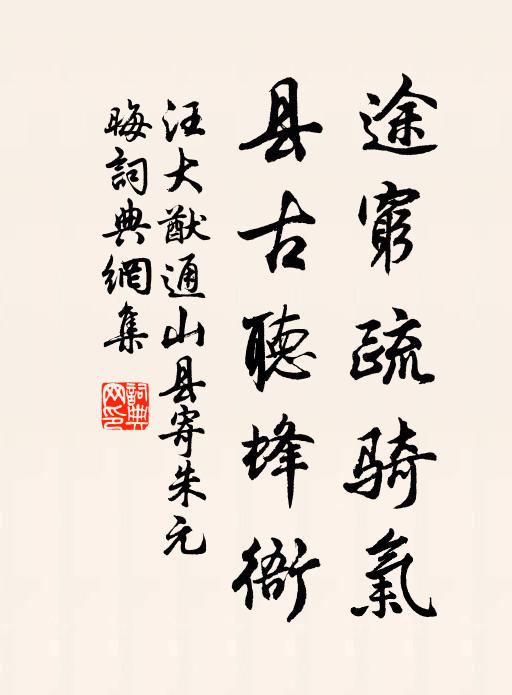 途窮疏骑氣
县古聴蜂衙
汪大猷通山县寄朱元
晦詞典網集
詞典
网印